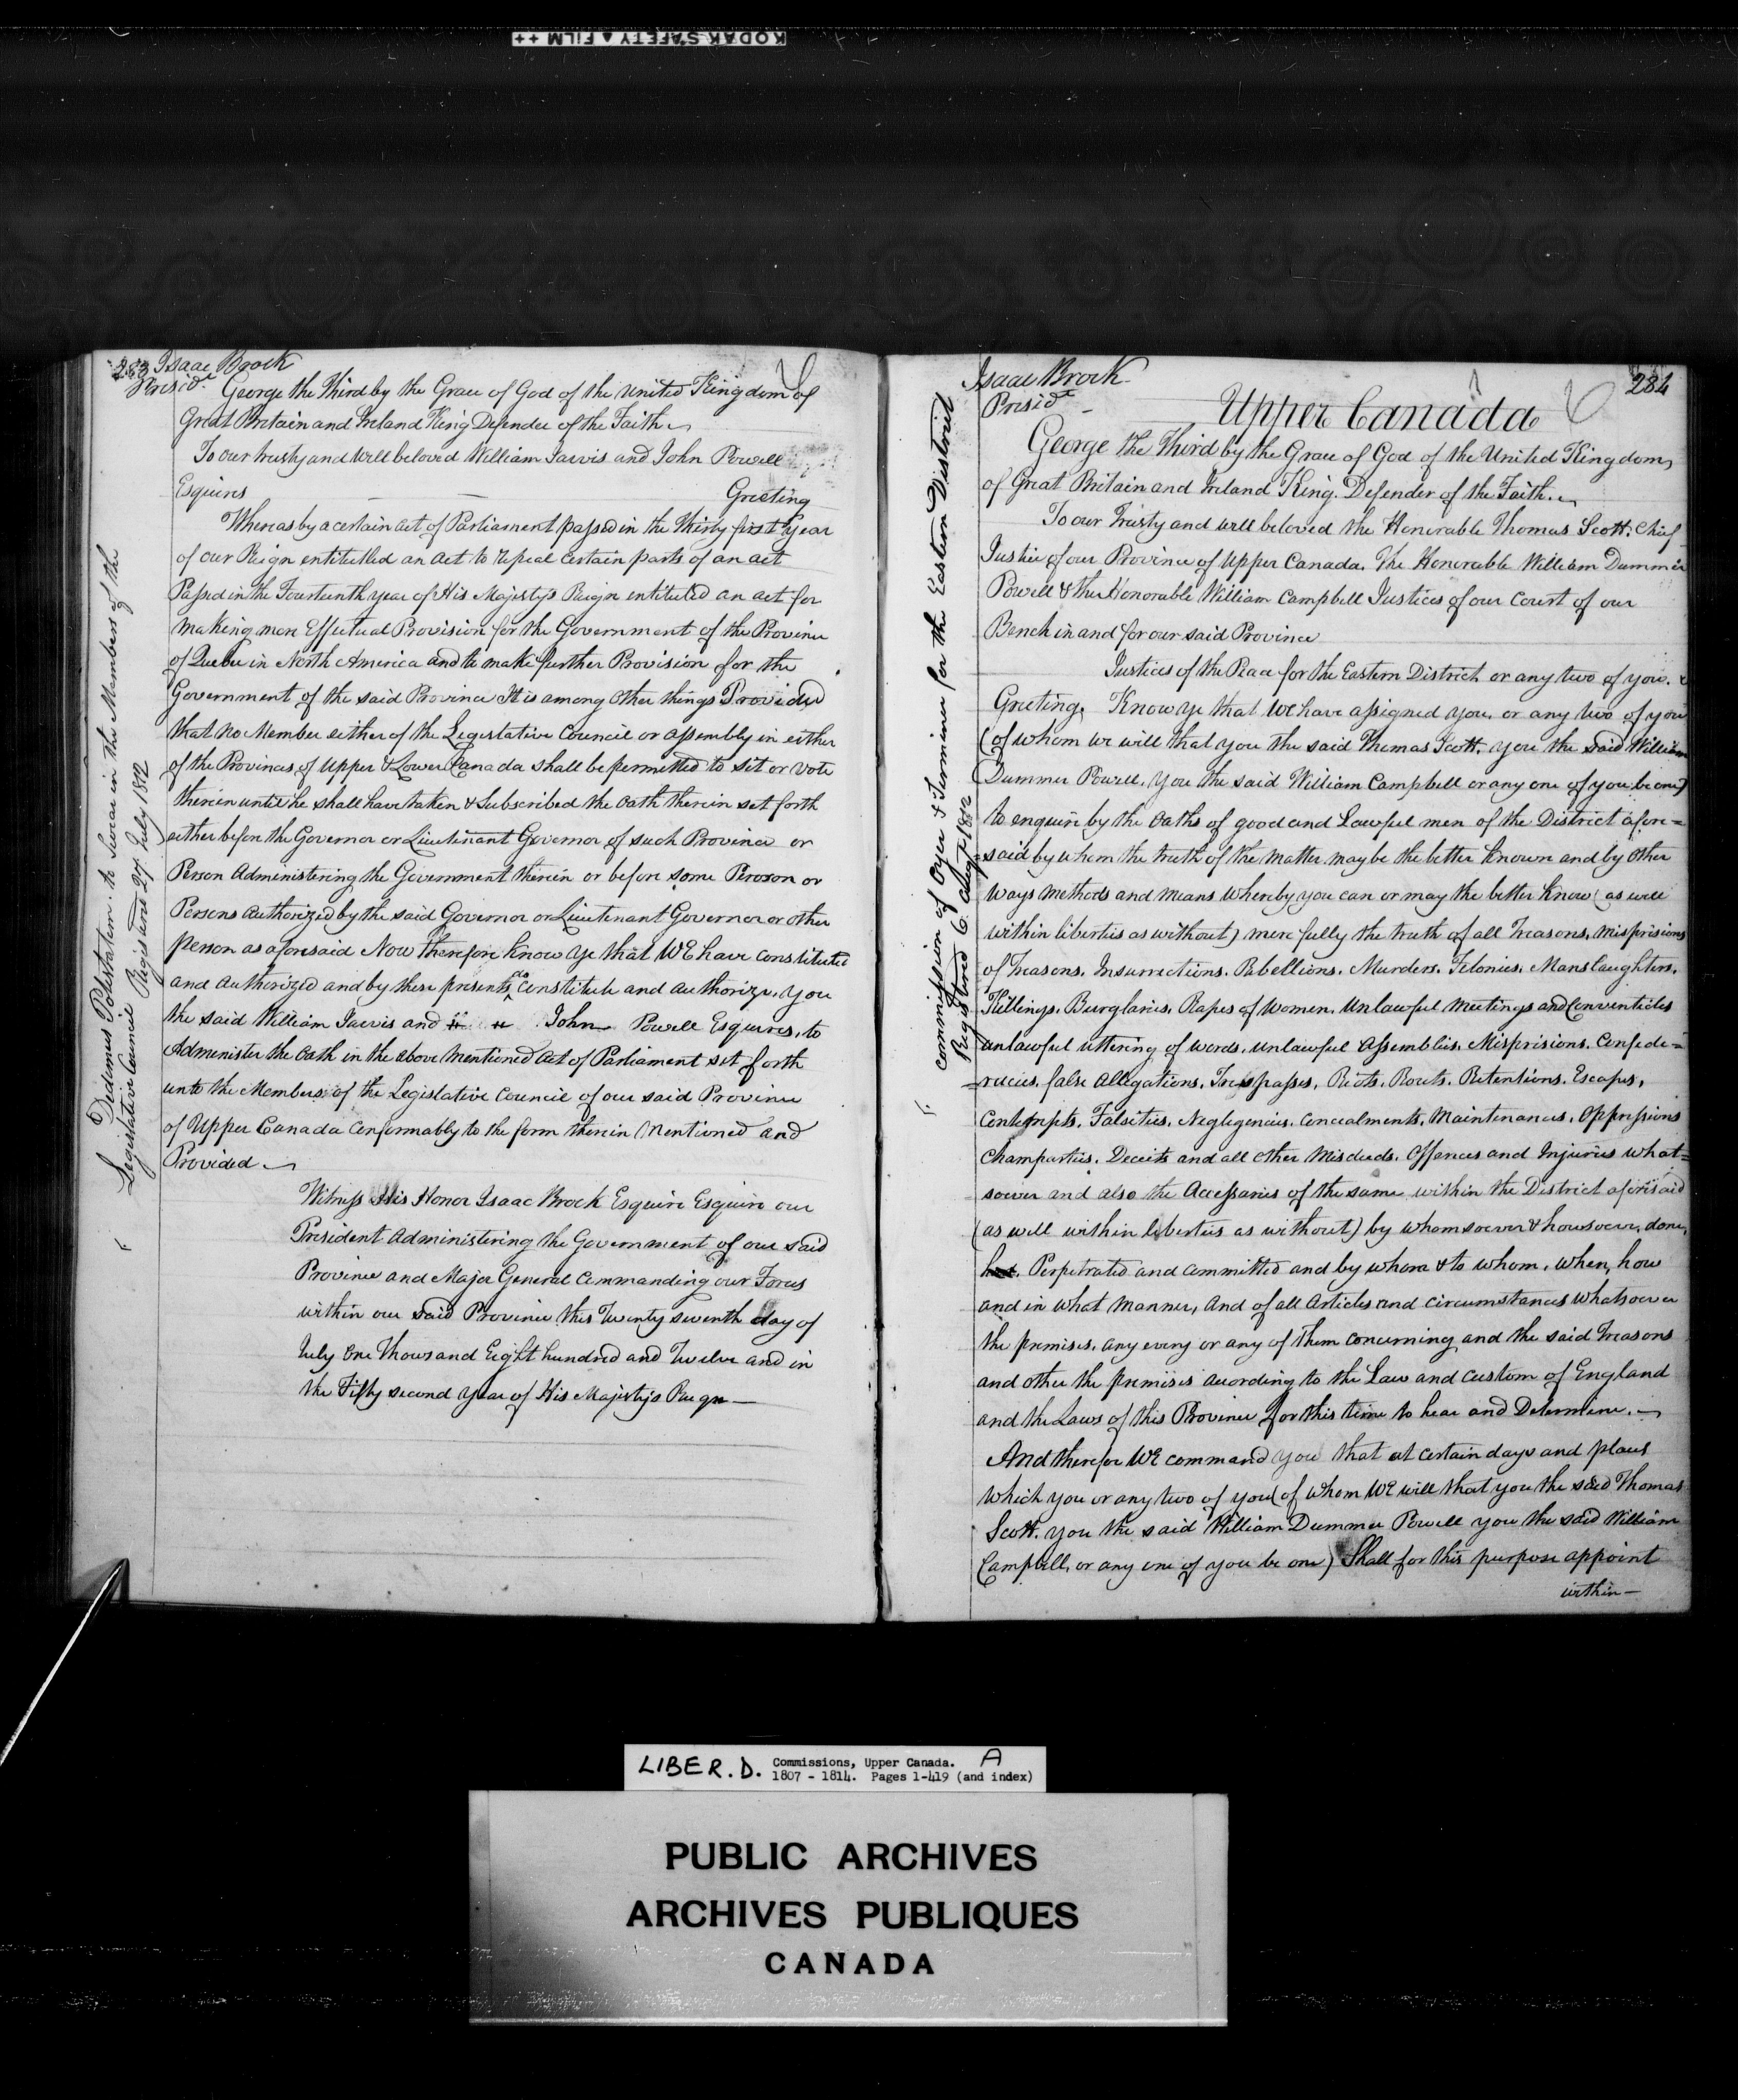 KODAK SAFETY ▲ FILM ++
283 Isaac Brock
Presidt
George the Third by the Grace of God of the United Kingdom of
Great Britain and Ireland King Defender of the Faith
To our trusty and well beloved William Jarvis and John Powell
Esquires Greeting
Whereas by a certain act of Parliament passed in the Thirty first Year
of our Reign entitulled an act to repeal certain parts of an act
Passed in the Fourteenth year of His Majestys Reign entituled an act for
making more Effectual Provision for the Government of the Province
of Quebec in North America and to make further Provision for the
Government of the said Province It is among other things Provided
that no Member either of the Legislative Council or assembly in either
of the Provinces of Upper & Lower Canada shall be permitted to sit or vote
therein until he shall have taken & Subscribed the oath therein set forth
either before the Governor or Lieutenant Governor of such Province or
Person Administering the Government therein or before some Person or
Persons authorized by the said Governor or Lieutenant Governor or other
person as aforesaid Now therefore know ye that WE have constituted
and authorized and by these presents do constitute and authorize, you
the said William Jarvis and John Powell Esquires, to
Administer the oath in the above mentioned act of Parliament set forth
unto the Members of the Legislative Council of our said Province
of Upper Canada conformably to the form therein mentioned and
Provided
Witness His Honor Isaac Brock Esquire Esquire our
President Administering the Government of our said
Province and Major General Commanding our Forces
within our said Province this Twenty seventh day of
July One Thousand Eight hundred and Twelve and in
the Fifty second year of His Majestys Reign
Dedimus Potestatem to Swear in the Members of the
Legislative Council Registered 27 July 1812
Isaac Brock
Presidt
284
Upper Canada
George the Third by the Grace of God of the United Kingdom,
of Great Britain and Ireland King. Defender of the Faith.
To our Trusty and well beloved the Honorable Thomas Scott. Chief
Justice of our Province of Upper Canada. The Honorable William Dummer
Powell & the Honorable William Campbell Justices of our Court of our
Bench in and for our said Province
Justices of the Peace for the Eastern District or any two of you.
Greeting. Know ye that We have assigned you, or any two of you
(of whom we will that you the said Thomas Scott. you the said William
Dummer Powell. You the said William Campbell or any one of you be one)
to enquire by the oaths of good and Lawful men of the District afore=
said by whom the truth of the matter may be the better known and by other
ways methods and means whereby you can or may the better know (as well
within liberties as without) more fully the truth of all Treasons, misprisions
of Treasons. Insurrections. Rebellions. Murders. Felonies. Manslaughters.
Killings. Burglaries. Rapes of Women. Unlawful meetings and Conventicles
unlawful uttering of words. unlawful Assemblies. Misprisions. Confede=
=racies, false allegations. Trespasses, Riots. Routs. Retentions. Escapes,
Contempts. Falseties. Negligencies. Concealments. Maintenances. Oppressions
Champarties. Deceits and all other misdeeds. Offences and Injuries what=
soever and also the Accessaries of the same within the District aforesaid
(as well within liberties as without) by whomsoever & howsoever, done,
Perpetrated and committed and by whom & to whom, when, how
and in what manner, and of all articles and circumstances whatsoever
the premises, any every or any of them concerning and the said Treasons
and other the premises according to the Law and custom of England
and the Laws of this Province for this time to hear and Determine.
And therefore WE command you that at certain days and places
which you or any two of you (of whom WE will that you the said Thomas
Scott. you the said William Dummer Powell you the said William
Campbell, or any one of you be one) Shall for this purpose appoint
within
commission of Oyer & Terminer for the Eastern District
Registered 6. Augt 1812
LIBER. D. Commissions, Upper Canada. A
1807 - 1814. Pages 1-419 (and index)
PUBLIC ARCHIVES
ARCHIVES PUBLIQUES
CANADA